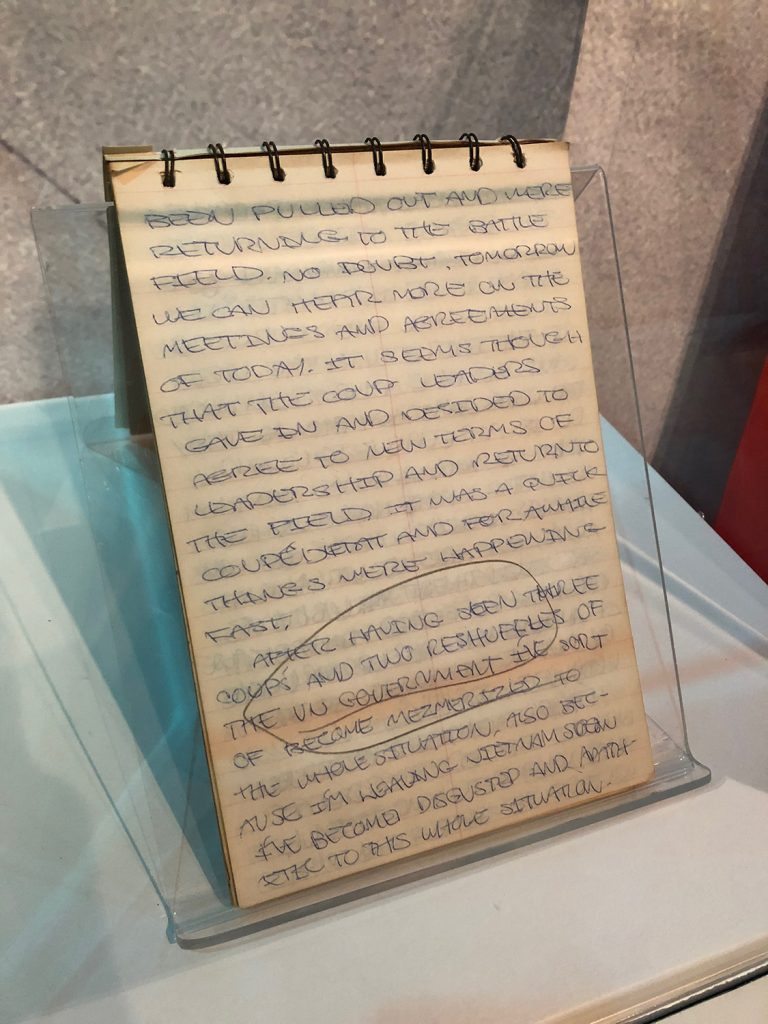 BEEN PULLED OUT AND WERE
RETURNING TO THE BATTLE
FIELD. NO DOUBT, TOMORROW
WE CAN HEAR MORE ON THE
MEETINGS AND AGREEMENTS
OF TODAY. IT SEEMS THOUGH
THAT THE COUP LEADERS
GAVE IN AND DESIDED TO
AGREE TO NEW TERMS OF
LEADERSHIP AND RETURN TO
THE FIELD. IT WAS A QUICK
COUPÉ DETAT AND FOR AWHILE
THINGS WERE HAPPENING
FAST.
AFTER HAVING SEEN THREE
COUPS AND TWO RESHUFFLES OF
THE VN GOVERNMENT I'VE SORT
OF BECOME MEZMERIZED TO
THE WHOLE SITUATION, ALSO BEC-
AUSE I'M LEAVING VIETNAM SOON
I'VE BECOME DISGUSTED AND APATH-
ETIC TO THIS WHOLE SITUATION.